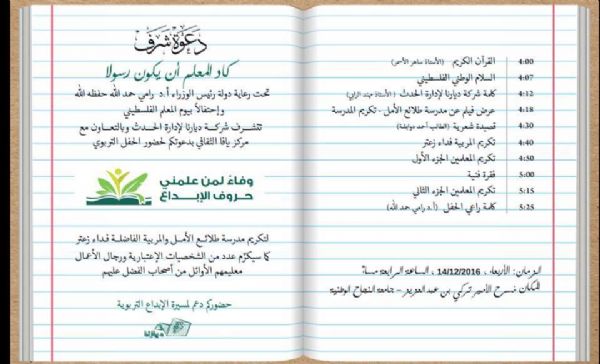 دعوة شرف
كاد المعلم أن يكون رسولا
تحت رعاية دولة رئيس الوزراء أ.د. رامي حمد الله حفظه الله
وإحتفالاً بيوم المعلم الفلسطيني
تتشرف شركة ديارنا لإدارة الحدث وبالتعاون مع
مركز يافا الثقافي بدعوتكم لحضور الحفل التربوي
وفاءً لمن علمني
حروف الإبداع
لتكريم مدرسة طلائع الأمل والمربية الفاضلة فداء زعتر
كما سيكرّم عدد من الشخصيات الإعتبارية ورجال الأعمال
معلميهم الأوائل من أصحاب الفضل عليهم
حضوركم دعم لمسيرة الإبداع التربوية
ديارنا
4:00 القرآن الكريم (الأستاذ ساهر الأحمر)
4:07 السلام الوطني الفلسطيني
4:12 كلمة شركة ديارنا لإدارة الحدث (الأستاذ مهند الرابي)
4:18 عرض فيلم عن مدرسة طلائع الأمل - تكريم المدرسة
4:30 قصيدة شعرية (الطالب أحمد دوابشة)
4:40 تكريم المربية فداء زعتر
4:50 تكريم المعلمين الجزء الأول
5:00 فقرة فنية
5:15 تكريم المعلمين الجزء الثاني
5:25 كلمة راعي الحفل (أ.د رامي حمد الله)
الزمان: الأربعاء ، 14/12/2016 ، الساعة الرابعة مساءً
المكان: مسرح الأمير تركي بن عبد العزيز - جامعة النجاح الوطنية